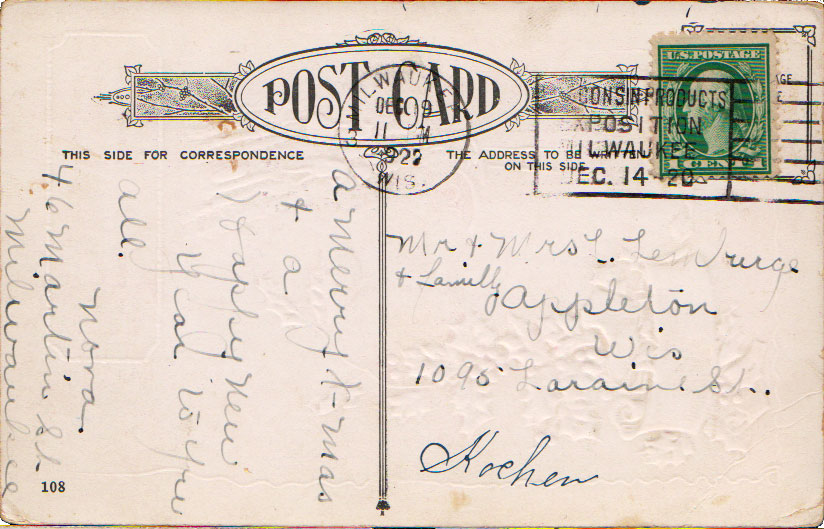 POST CARD
THIS SIDE FOR CORRESPONDENCE
THE ADDRESS TO BE WRITTEN
ON THIS SIDE
MILWAUKEE
DEC 9
11 M
1922
WIS.
CONSIN PRODUCTS
EXPOSITION
MILWAUKEE
DEC. 14-20
U.S. POSTAGE
1 CENT 1
A Merry X-mas
& a
Happy New
Year to you
all.
Nora.
46 Martin St.
Milwaukee
Mr & Mrs L.
& Family
Appleton
Wis
1095 Loraine St.
Kochen
108